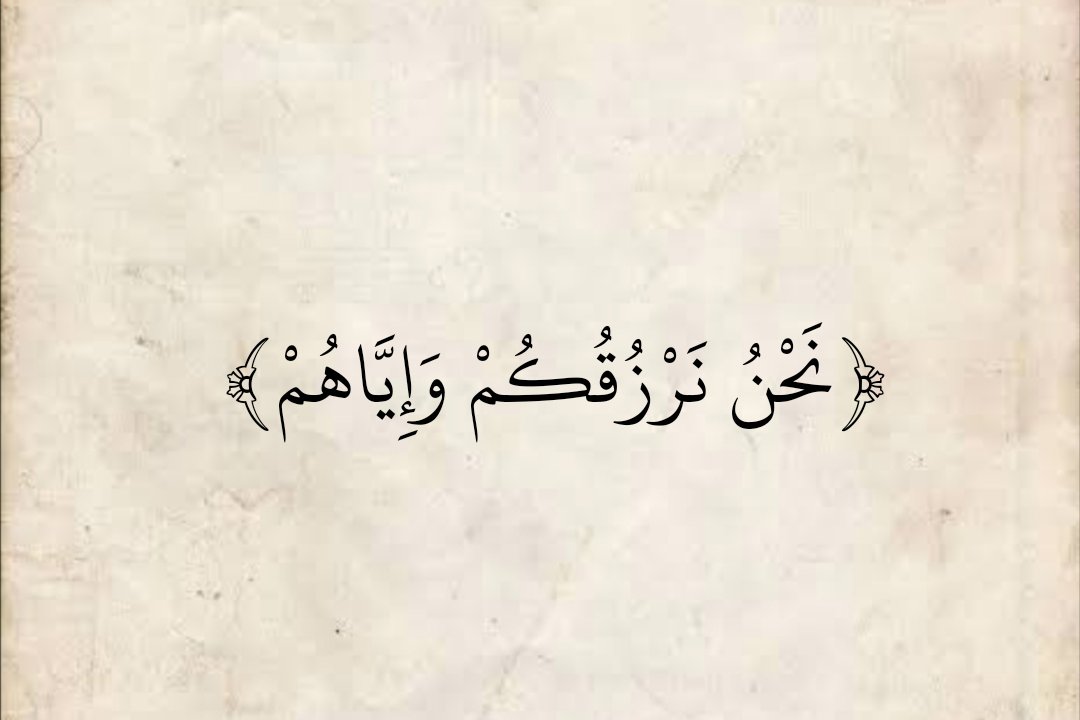 ﴿نَحْنُ نَرْزُقُكُمْ وَإِيَّاهُمْ﴾